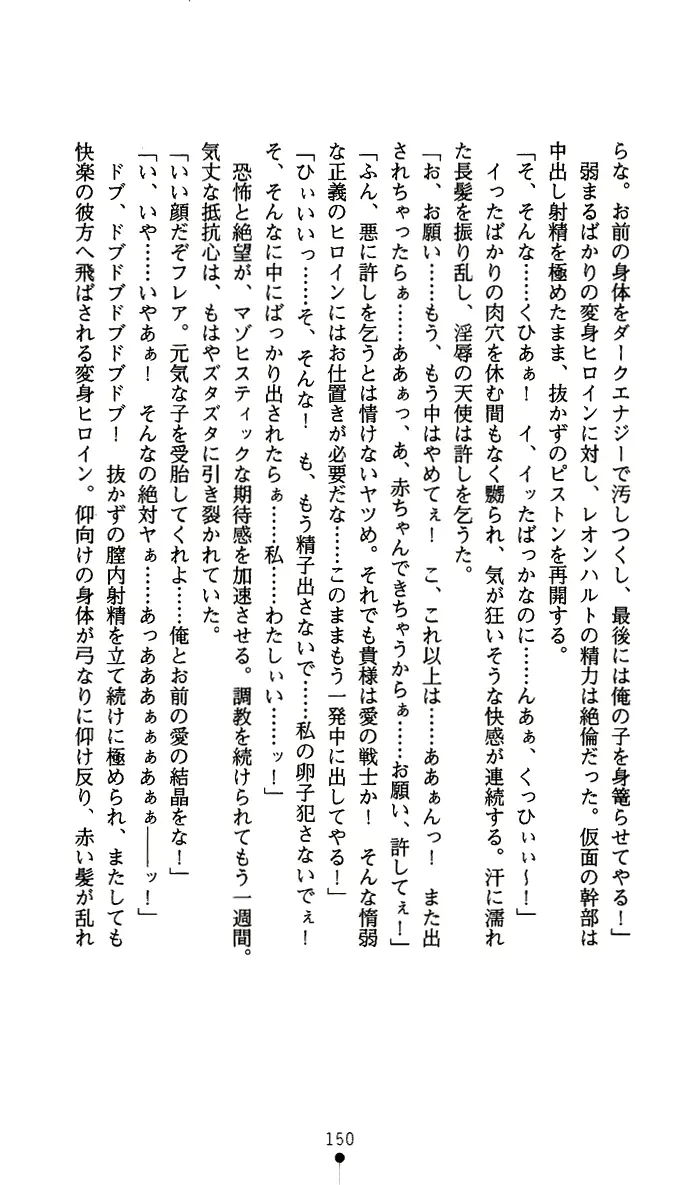 らな。お前の身体をダークエナジーで汚しつくし、最後には俺の子を身篭らせてやる！」
弱まるばかりの変身ヒロインに対し、レオンハルトの精力は絶倫だった。仮面の幹部は
中出し射精を極めたまま、抜かずのピストンを再開する。
「そ、そんな……くひあぁ！　イ、イッたばっかなのに……んあぁ、くっひぃぃ～！」
イったばかりの肉穴を休む間もなく嬲られ、気が狂いそうな快感が連続する。汗に濡れ
た長髪を振り乱し、淫辱の天使は許しを乞うた。
「お、お願い……もう、もう中はやめてぇ！　こ、これ以上は……ああぁんっ！　また出
されちゃったらぁ……ああぁっ、あ、赤ちゃんできちゃうからぁ……お願い、許してぇ！」
「ふん、悪に許しを乞うとは情けないヤツめ。それでも貴様は愛の戦士か！　そんな惰弱
な正義のヒロインにはお仕置きが必要だな……このままもう一発中に出してやる！」
「ひぃいいっ……そ、そんな！　も、もう精子出さないで……私の卵子犯さないでぇ！
そ、そんなに中にばっかり出されたらぁ……私……わたしぃい……ッ！」
恐怖と絶望が、マゾヒスティックな期待感を加速させる。調教を続けられてもう一週間。
気丈な抵抗心は、もはやズタズタに引き裂かれていた。
「いい顔だぞフレア。元気な子を受胎してくれよ……俺とお前の愛の結晶をな！」
「い、いや……いやあぁ！　そんなの絶対ヤぁ……あっあああぁぁぁあぁぁ――ッ！」
ドブ、ドブドブドブドブ！　抜かずの膣内射精を立て続けに極められ、またしても
快楽の彼方へ飛ばされる変身ヒロイン。仰向けの身体が弓なりに仰け反り、赤い髪が乱れ
150